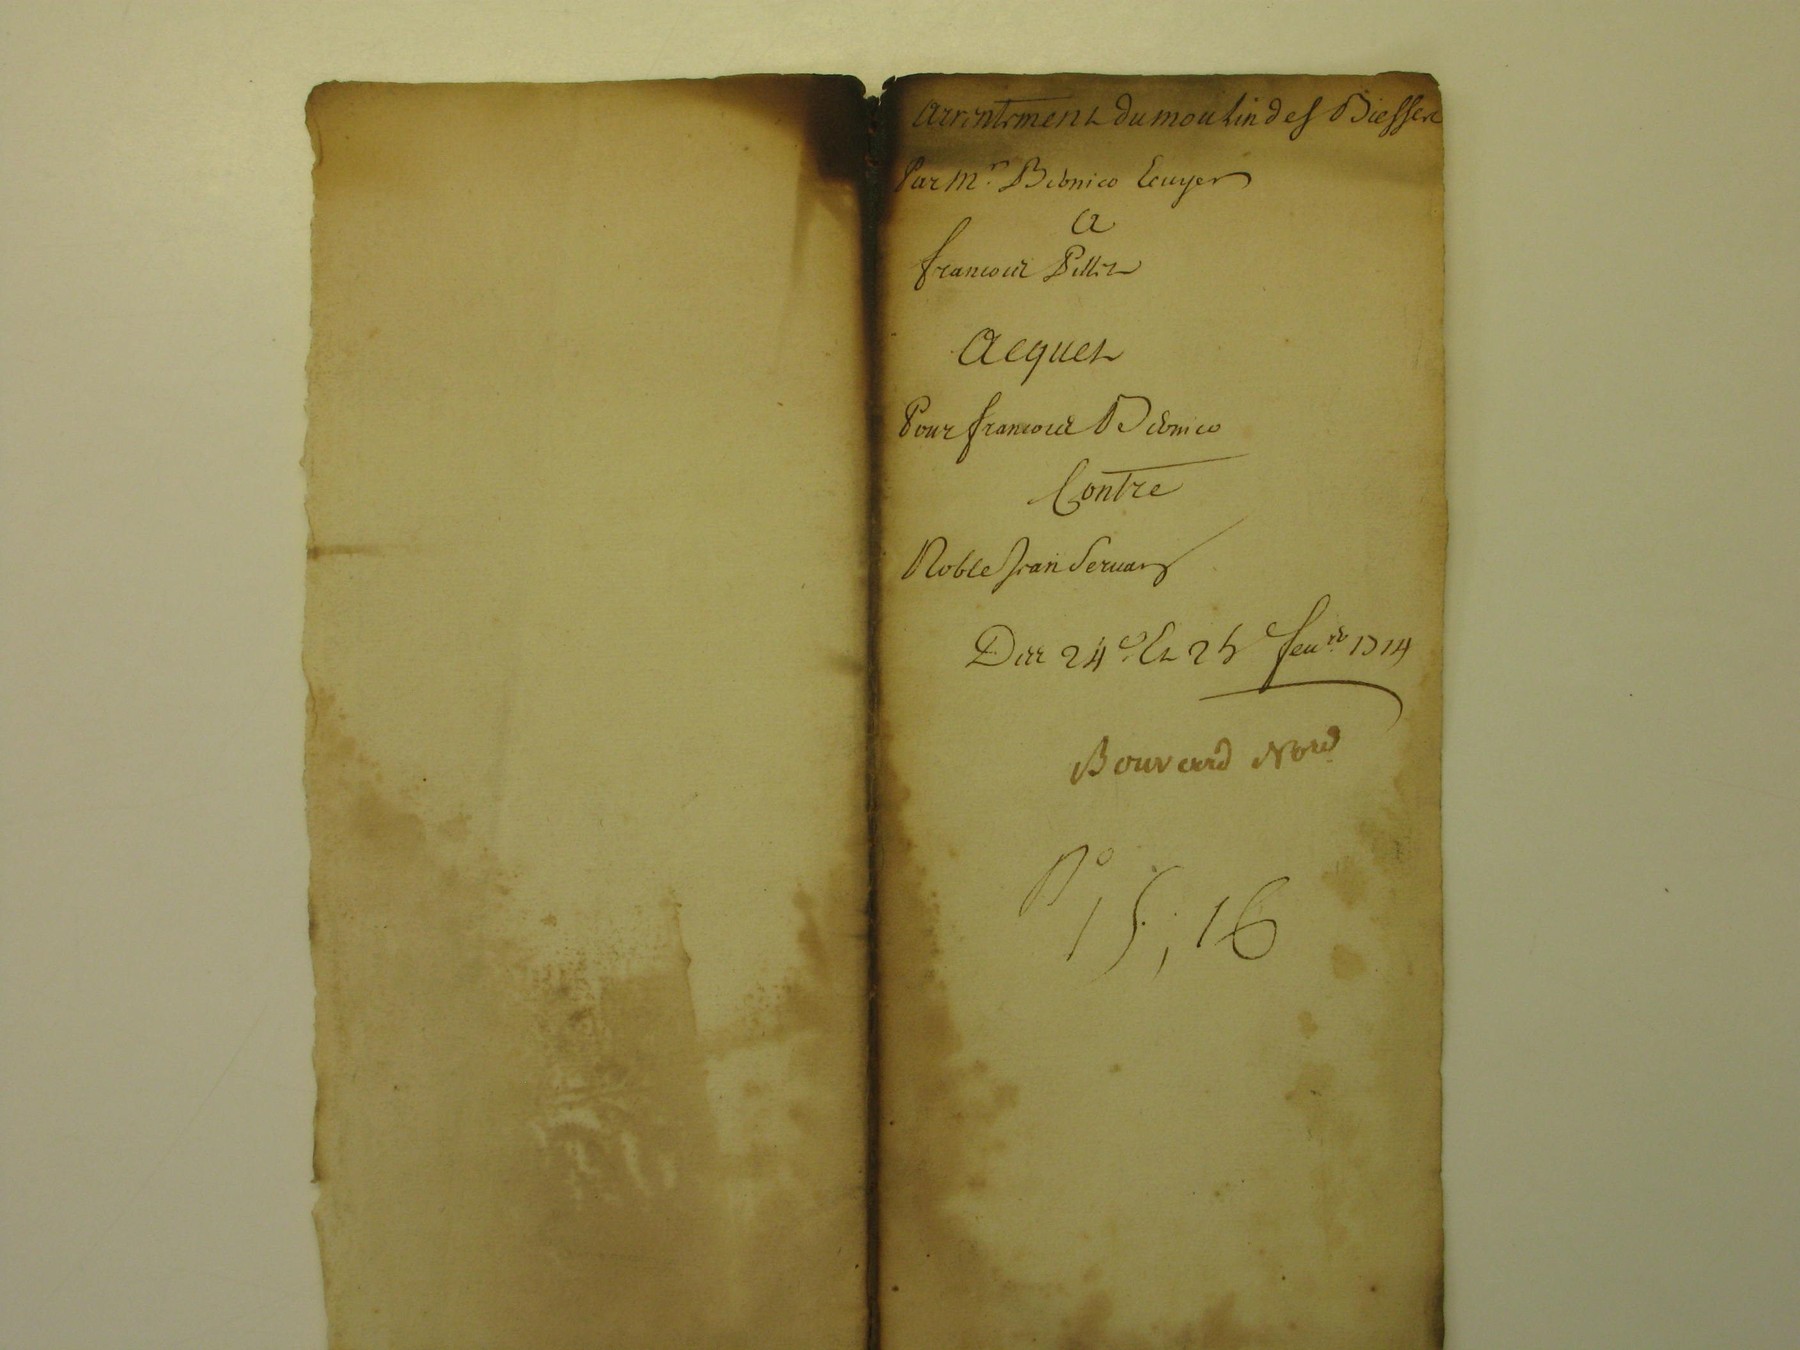 Arrentement du moulin des Biesses
Par Mr. Bionico Ecuyer
A
francois Pillet
Acquet
Pour francois Bionico
Contre
Noble Jean Servan
Des 24e. Et 25 feur. 1714
Bouvard Nore
No
15, 16